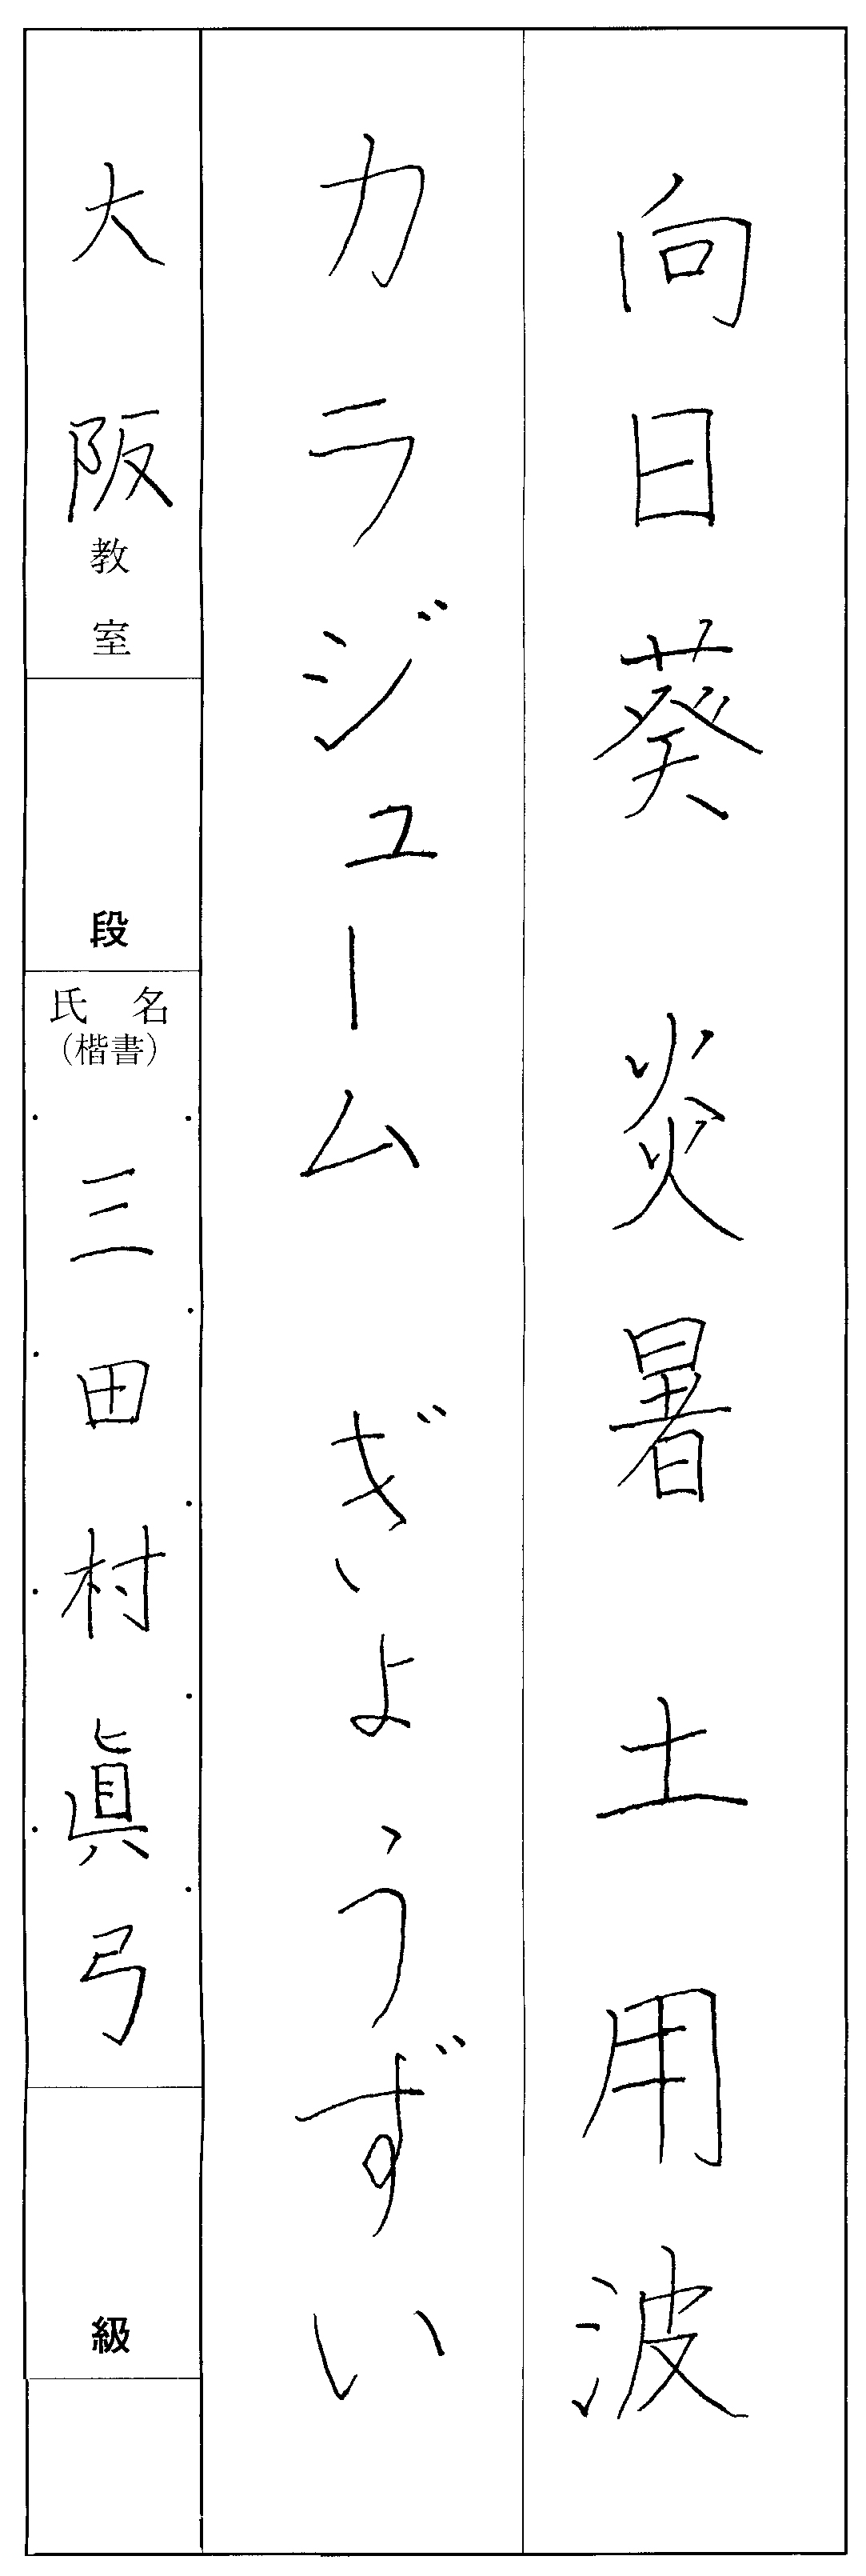 向日葵 炎暑 土用波
カラジューム ぎょうずい
大阪教室
段
氏名
(楷書)
三田村眞弓
級